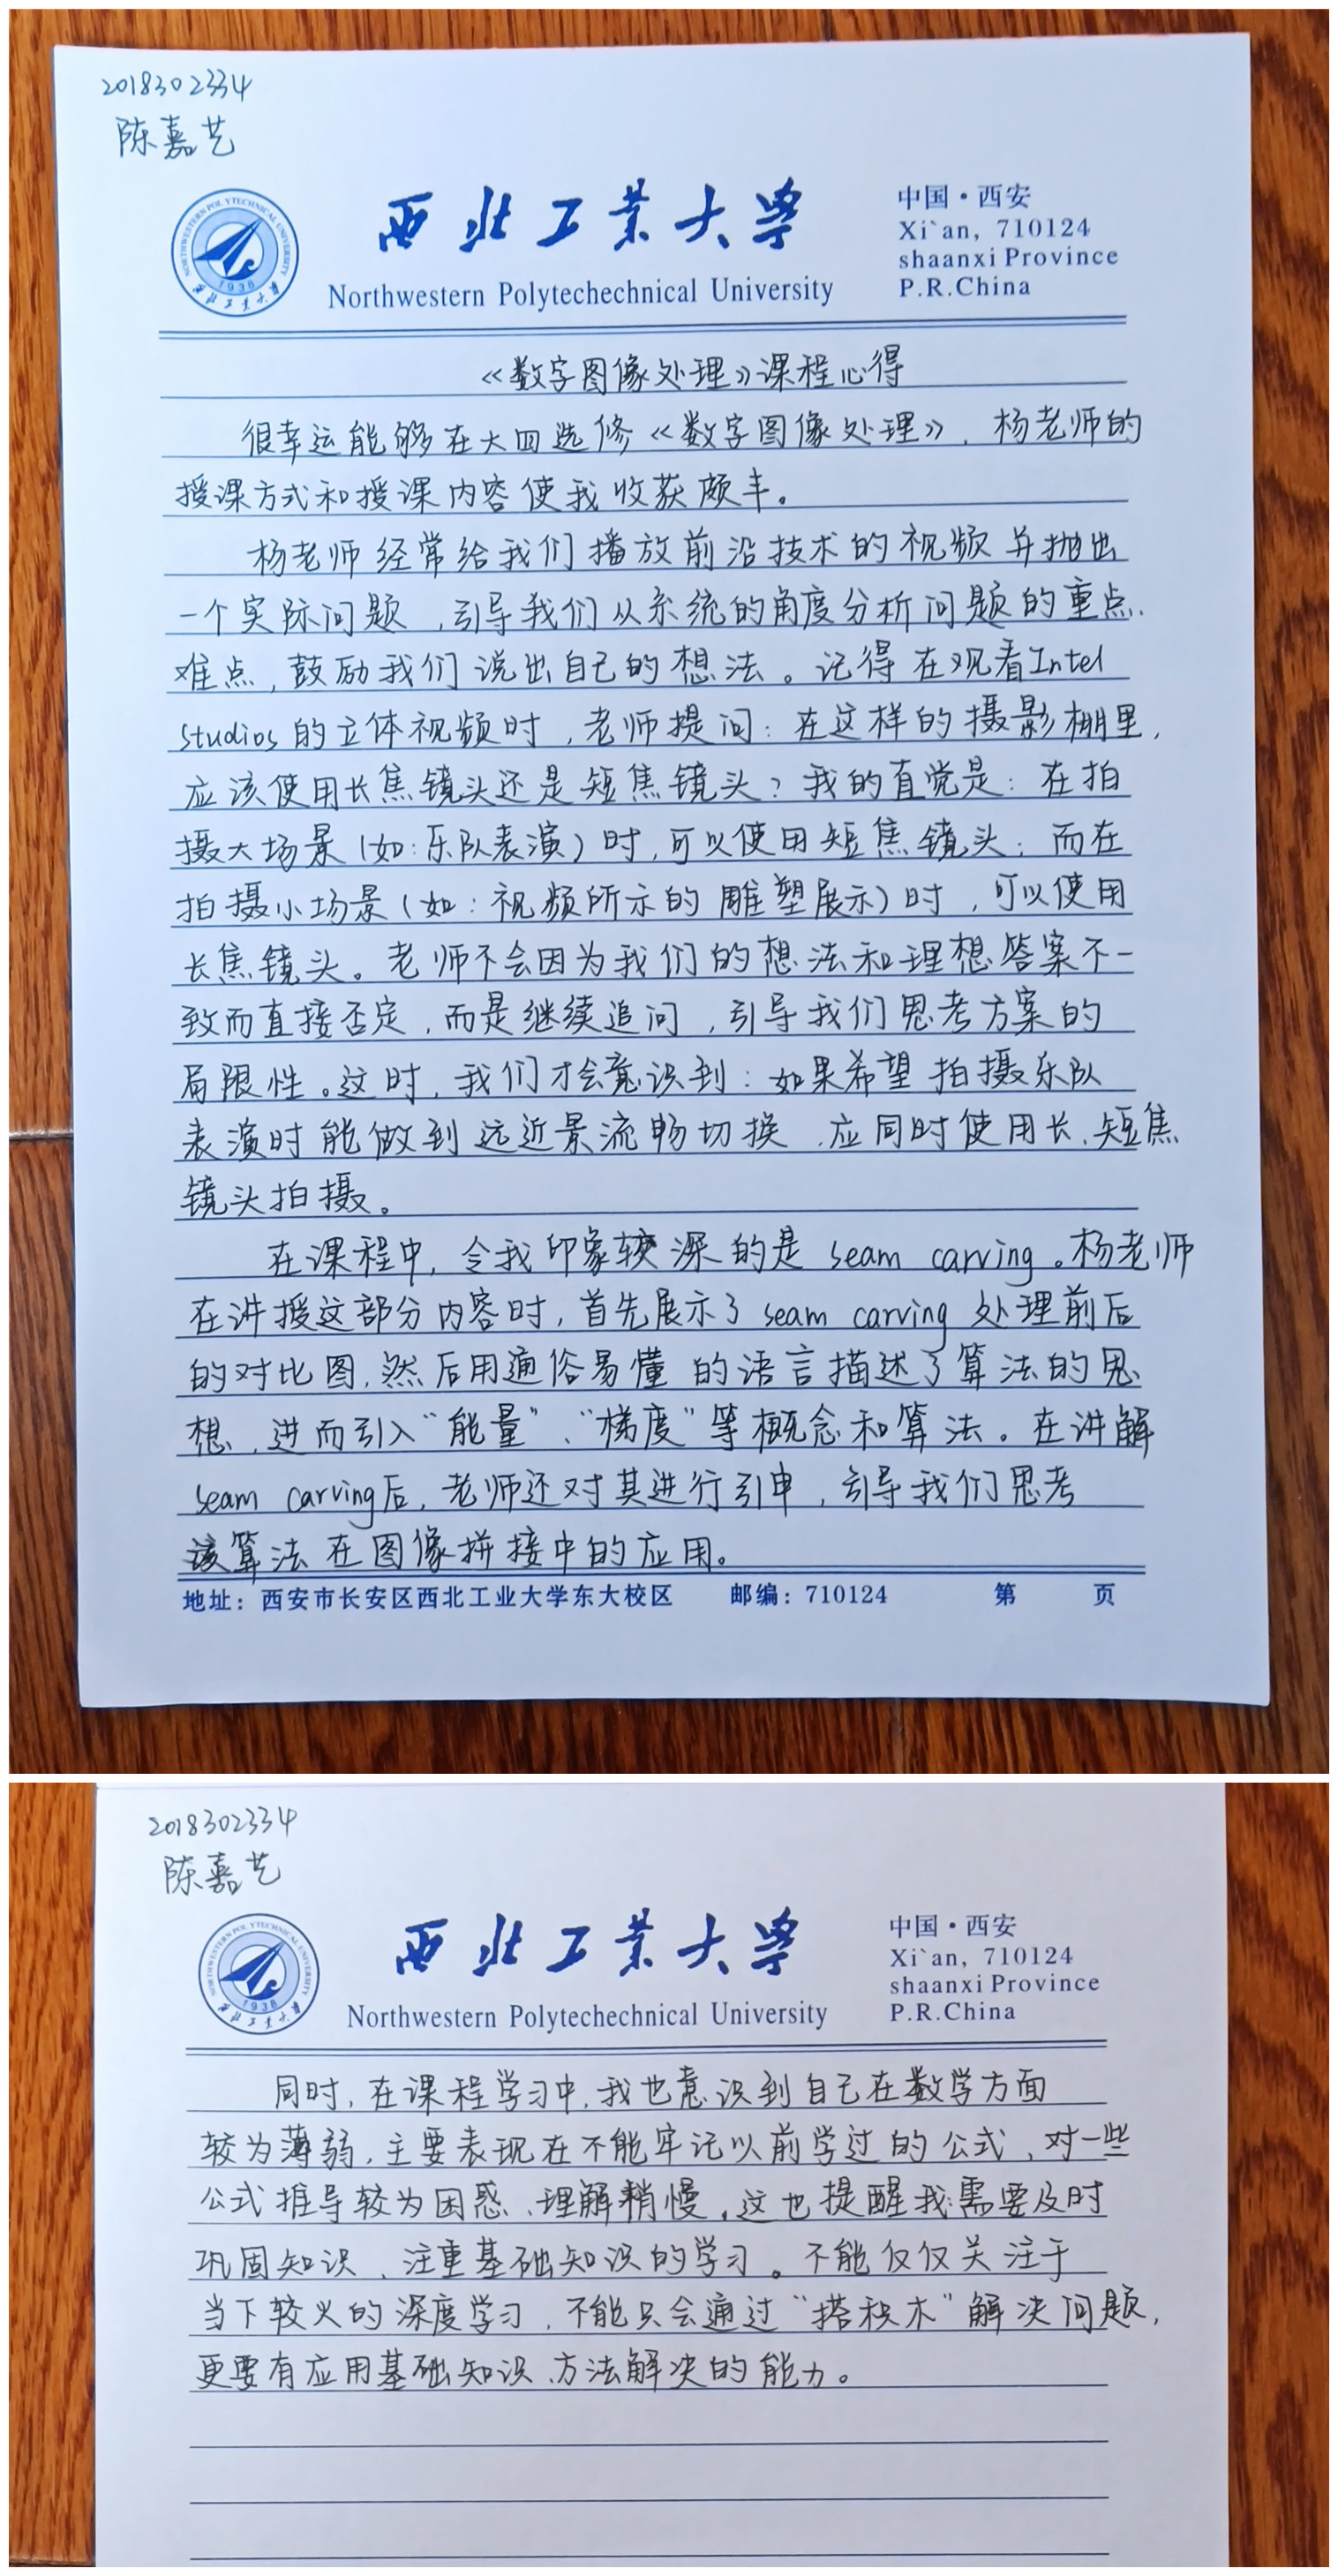 2018302334
陈嘉艺
西北工业大学
Northwestern Polytechechnical University
中国·西安
Xi`an, 710124
shaanxi Province
P.R.China
NORTHWESTERN POLYTECHNICAL UNIVERSITY
1938
西北工业大学
《数字图像处理》课程心得
很幸运能够在大四选修《数字图像处理》，杨老师的
授课方式和授课内容使我收获颇丰。
杨老师经常给我们播放前沿技术的视频并抛出
一个实际问题，引导我们从系统的角度分析问题的重点、
难点，鼓励我们说出自己的想法。记得在观看Intel
Studios的立体视频时，老师提问：在这样的摄影棚里，
应该使用长焦镜头还是短焦镜头？我的直觉是：在拍
摄大场景（如：乐队表演）时，可以使用短焦镜头；而在
拍摄小场景（如：视频所示的雕塑展示）时，可以使用
长焦镜头。老师不会因为我们的想法和理想答案不一
致而直接否定，而是继续追问，引导我们思考方案的
局限性。这时，我们才会意识到：如果希望拍摄乐队
表演时能做到远近景流畅切换，应同时使用长、短焦
镜头拍摄。
在课程中，令我印象较深的是 seam carving。杨老师
在讲授这部分内容时，首先展示了 seam carving 处理前后
的对比图，然后用通俗易懂的语言描述了算法的思
想，进而引入“能量”、“梯度”等概念和算法。在讲解
seam carving后，老师还对其进行引申，引导我们思考
该算法在图像拼接中的应用。
地址：西安市长安区西北工业大学东大校区 邮编：710124 第 页
2018302334
陈嘉艺
西北工业大学
Northwestern Polytechechnical University
中国·西安
Xi`an, 710124
shaanxi Province
P.R.China
NORTHWESTERN POLYTECHNICAL UNIVERSITY
1938
西北工业大学
同时，在课程学习中，我也意识到自己在数学方面
较为薄弱，主要表现在不能牢记以前学过的公式，对一些
公式推导较为困惑、理解稍慢。这也提醒我需要及时
巩固知识，注重基础知识的学习。不能仅仅关注于
当下较火的深度学习，不能只会通过“搭积木”解决问题，
更要有应用基础知识、方法解决的能力。